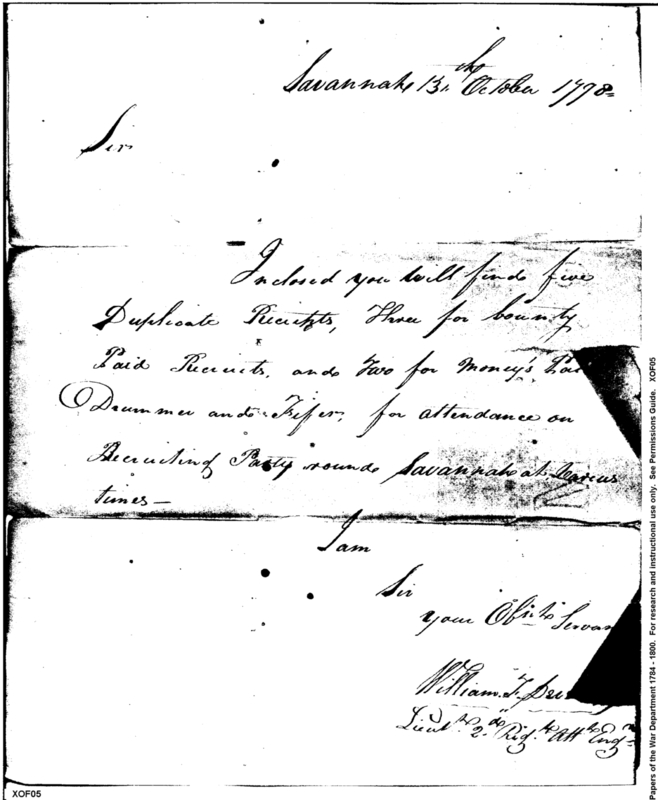 Savannah 13th October 1798
Sir
Inclosed you will find five
Duplicate Receipts, Three for bounty
Paid Recruits, and Two for Money's
Drummer and Fifer, for attendance on
Recruiting Party round Savannah at Various
times —
I am
Sir
your Obt
William T.
Lieut 2d Regt Att Eng
XOF05
Papers of the War Department 1784 - 1800. For research and instructional use only. See Permissions Guide. XOF05